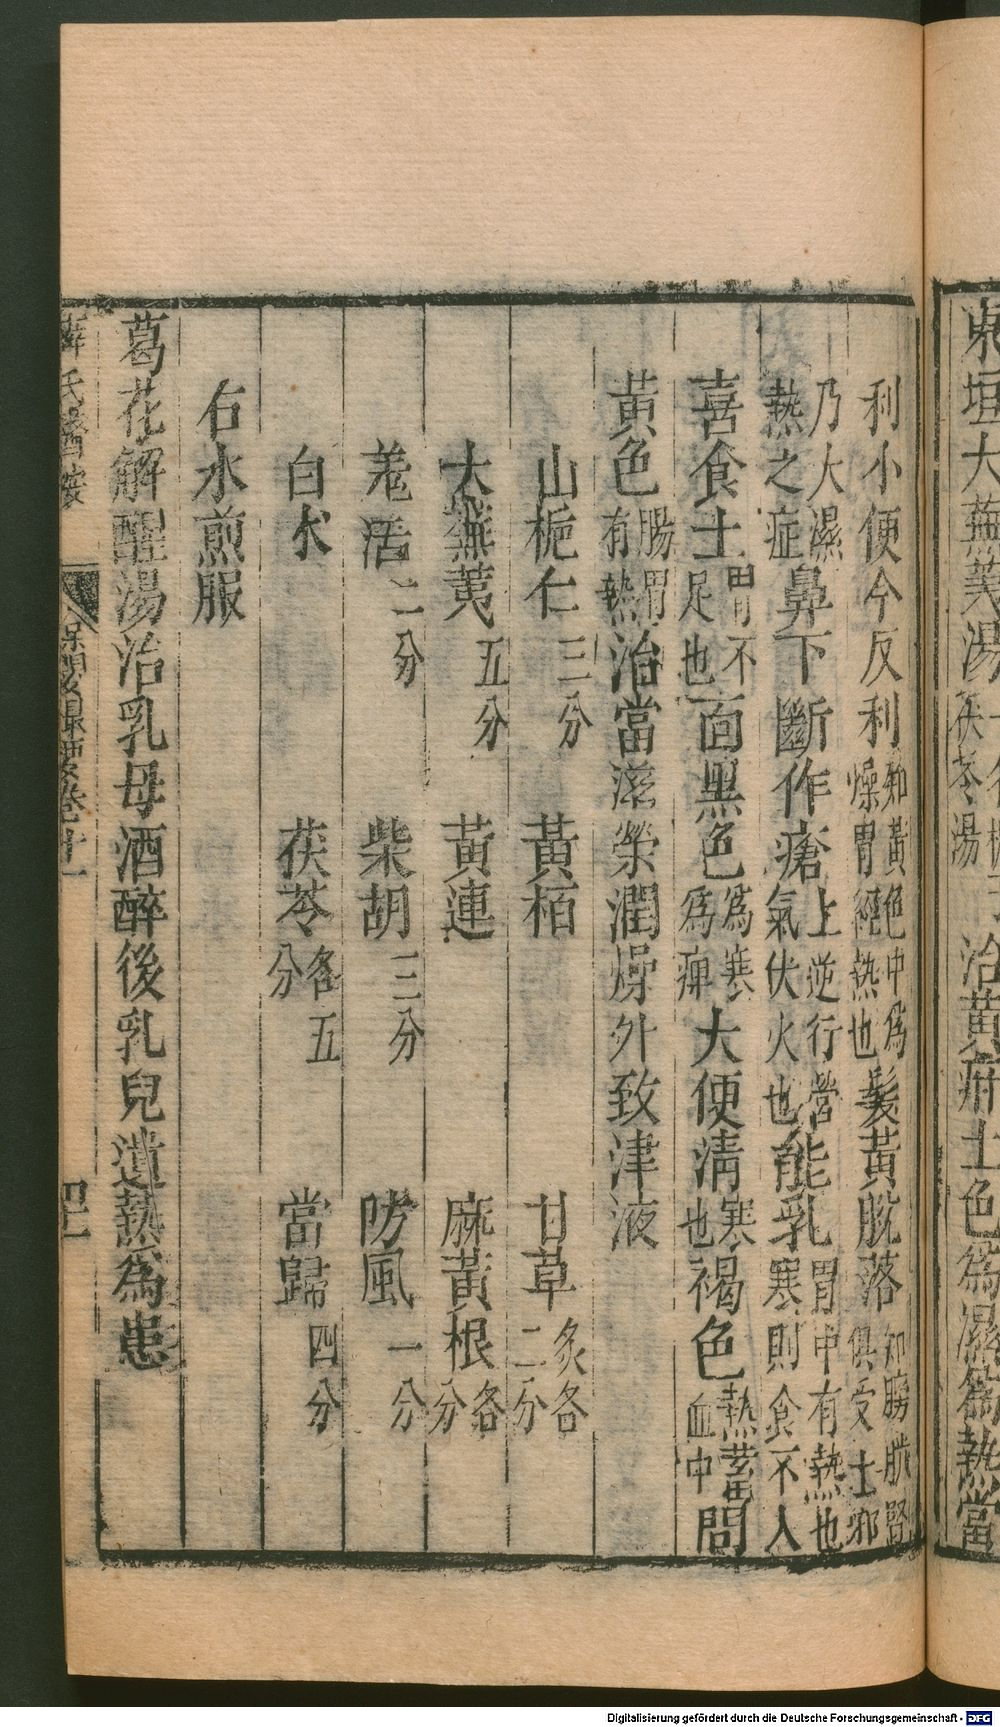 東垣大蕪荑湯
治黃疸土色爲濕爲熱當
利小便今反利知黃色中爲燥胃經熱也髮黃脫落知膀胱腎俱受土邪
乃大濕熱之症鼻下斷作瘡上逆行營氣伏火也能乳胃中有熱也寒則食不入
喜食土胃不足也面黑色爲寒爲痺大便淸寒也褐色熱蓄血中問
黃色腸胃有熱治當滋榮潤燥外致津液
山梔仁三分 黃栢 甘草炙各二分
大蕪荑五分 黃連 麻黃根各分
羌活二分 柴胡三分 防風一分
白朮 茯苓各五分 當歸四分
右水煎服
葛花解酲湯治乳母酒醉後乳兒遺熱爲患
薛氏醫按 保嬰撮要卷十一
Digitalisierung gefördert durch die Deutsche Forschungsgemeinschaft - DFG